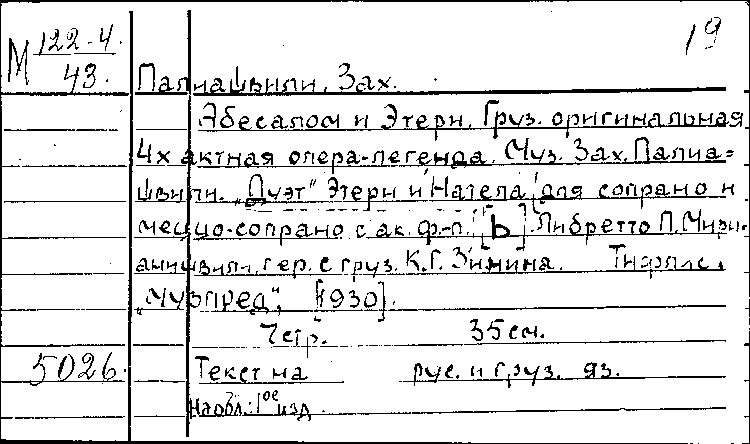 19
М 122-4.
43.
Палиашвили, Зах.
Абесалом и Этери. Груз. оригинальная
4х актная опера-легенда. Муз. Зах. Палиа=
швили. „Дуэт" Этери и Натела для сопрано и
меццо-сопрано с ак. ф-п. [Ь]. Либретто П. Мири-
анишвили, пер. с груз. К.Г. Зимина. Тифлис,
„Музпред", [1930].
7 стр. 35 см.
5026. Текст на рус. и груз. яз.
На обл.: 1ое изд